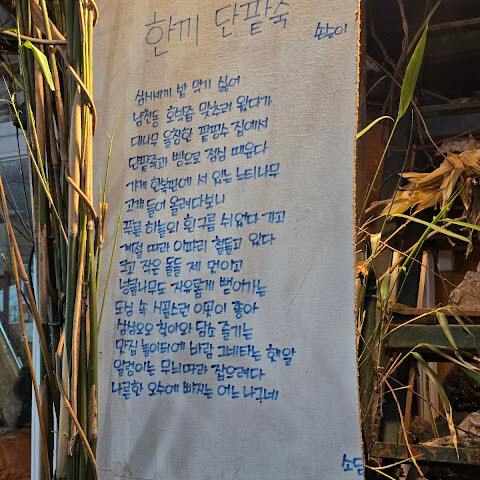 한끼 단팥죽
손놀이
삼시세끼 밥 먹기 싫어
남천동 호박즙 맞추러 왔다가
대나무 울창한 팥빙수 집에서
단팥죽과 빵으로 점심 때운다
가게 한복판에 서 있는 느티나무
고개 들어 올려다보니
푸른 하늘의 흰구름 쉬었다 가고
계절 따라 이파리 철들고 있다
크고 작은 돌들 제 멋이고
넝쿨나무도 자유롭게 뻗어가는
도심 속 시골스런 이곳이 좋아
삼삼오오 찾아와 담소 즐기는
맛집 놀이터에 바람 그네타는 햇살
알렁이는 무늬따라 잡으려다
나른한 오수에 빠지는 어느 나그네
소담